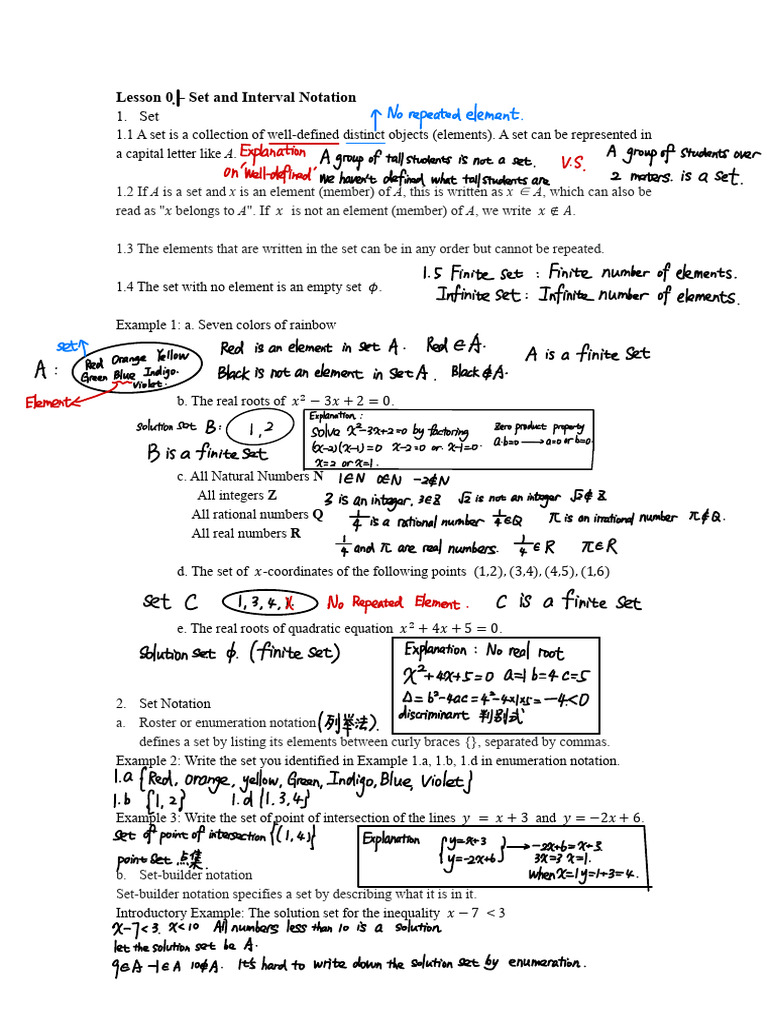 Lesson 0 – Set and Interval Notation
1. Set
↑ No repeated element.
1.1 A set is a collection of well-defined distinct objects (elements). A set can be represented in
a capital letter like A.
Explanation on "well-defined"
A group of tall students is not a set.
We haven't defined what tall students are
V.S.
A group of students over
2 maters. is a set.
1.2 If A is a set and x is an element (member) of A, this is written as x ∈ A, which can also be
read as "x belongs to A". If x is not an element (member) of A, we write x ∉ A.
1.3 The elements that are written in the set can be in any order but cannot be repeated.
1.5 Finite set : Finite number of elements.
Infinite set : Infinite number of elements.
1.4 The set with no element is an empty set ϕ.
Example 1: a. Seven colors of rainbow
set
A :
Red Orange Yellow
Green Blue Indigo.
Violet.
Element
Red is an element in set A. Red ∈ A.
Black is not an element in set A. Black ∉ A.
A is a finite set
b. The real roots of x² − 3x + 2 = 0.
solution set B: 1, 2
B is a finite set
Explanation :
Solve x²-3x+2=0 by factoring
(x-2)(x-1)=0 x-2=0 or x-1=0.
x=2 or x=1.
Zero product property
a·b=0 → a=0 or b=0
c. All Natural Numbers N 1∈N 0∈N -2∉N
All integers Z 3 is an integer, 3∈Z √2 is not an integer √2∉Z
All rational numbers Q 1/4 is a rational number 1/4∈Q π is an irrational number π∉Q.
All real numbers R 1/4 and π are real numbers. 1/4∈R π∈R
d. The set of x-coordinates of the following points (1,2), (3,4), (4,5), (1,6)
set C 1, 3, 4, No Repeated Element. C is a finite set
e. The real roots of quadratic equation x² + 4x + 5 = 0.
Solution set ϕ. (finite set)
Explanation : No real root
x²+4x+5=0 a=1 b=4 c=5
Δ= b²-4ac = 4²-4×1×5= -4<0
discriminant 判别式
2. Set Notation
a. Roster or enumeration notation (列举法).
defines a set by listing its elements between curly braces {}, separated by commas.
Example 2: Write the set you identified in Example 1.a, 1.b, 1.d in enumeration notation.
1.a {Red, orange, yellow, Green, Indigo, Blue, Violet}
1.b {1, 2} 1.d {1, 3, 4}
Example 3: Write the set of point of intersection of the lines y = x + 3 and y = −2x + 6.
Set of point of intersection {(1, 4)}
point set 点集
Explanation
y=x+3
y=-2x+6
→ -2x+6=x+3
3x=3 x=1.
when x=1 y=1+3=4.
b. Set-builder notation
Set-builder notation specifies a set by describing what it is in it.
Introductory Example: The solution set for the inequality x − 7 < 3
x-7<3. x<10 All numbers less than 10 is a solution
let the solution set be A.
9∈A -1∈A 10∉A. It's hard to write down the solution set by enumeration.